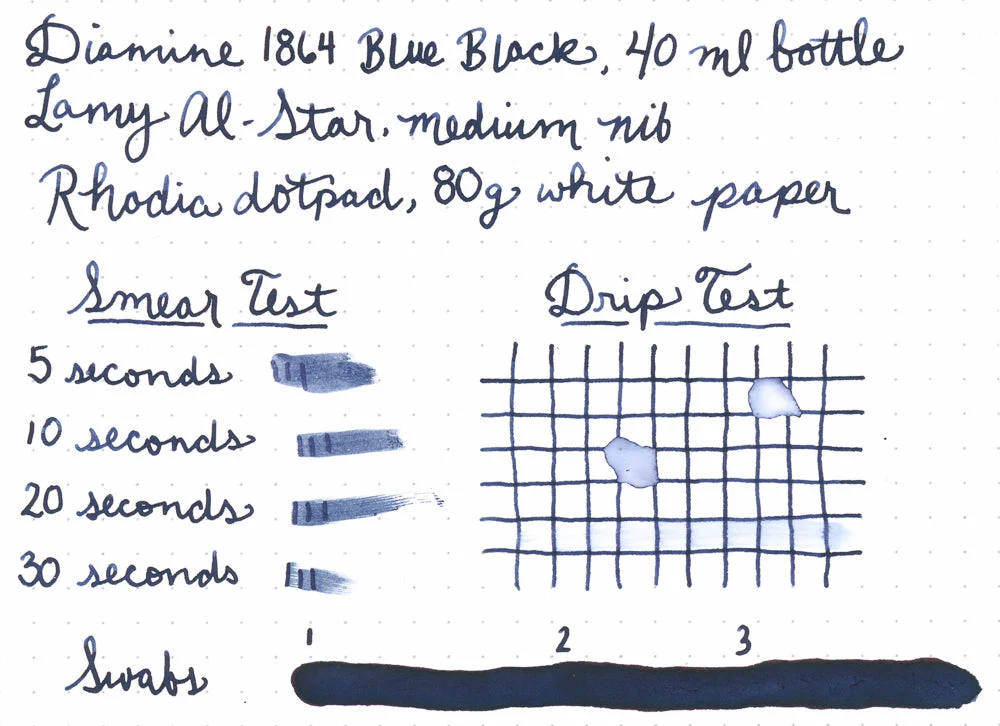 Diamine 1864 Blue Black, 40 ml bottle
Lamy Al-Star, medium nib
Rhodia dotpad, 80g white paper
Smear Test
Drip Test
5 seconds
10 seconds
20 seconds
30 seconds
1 2 3
Swabs